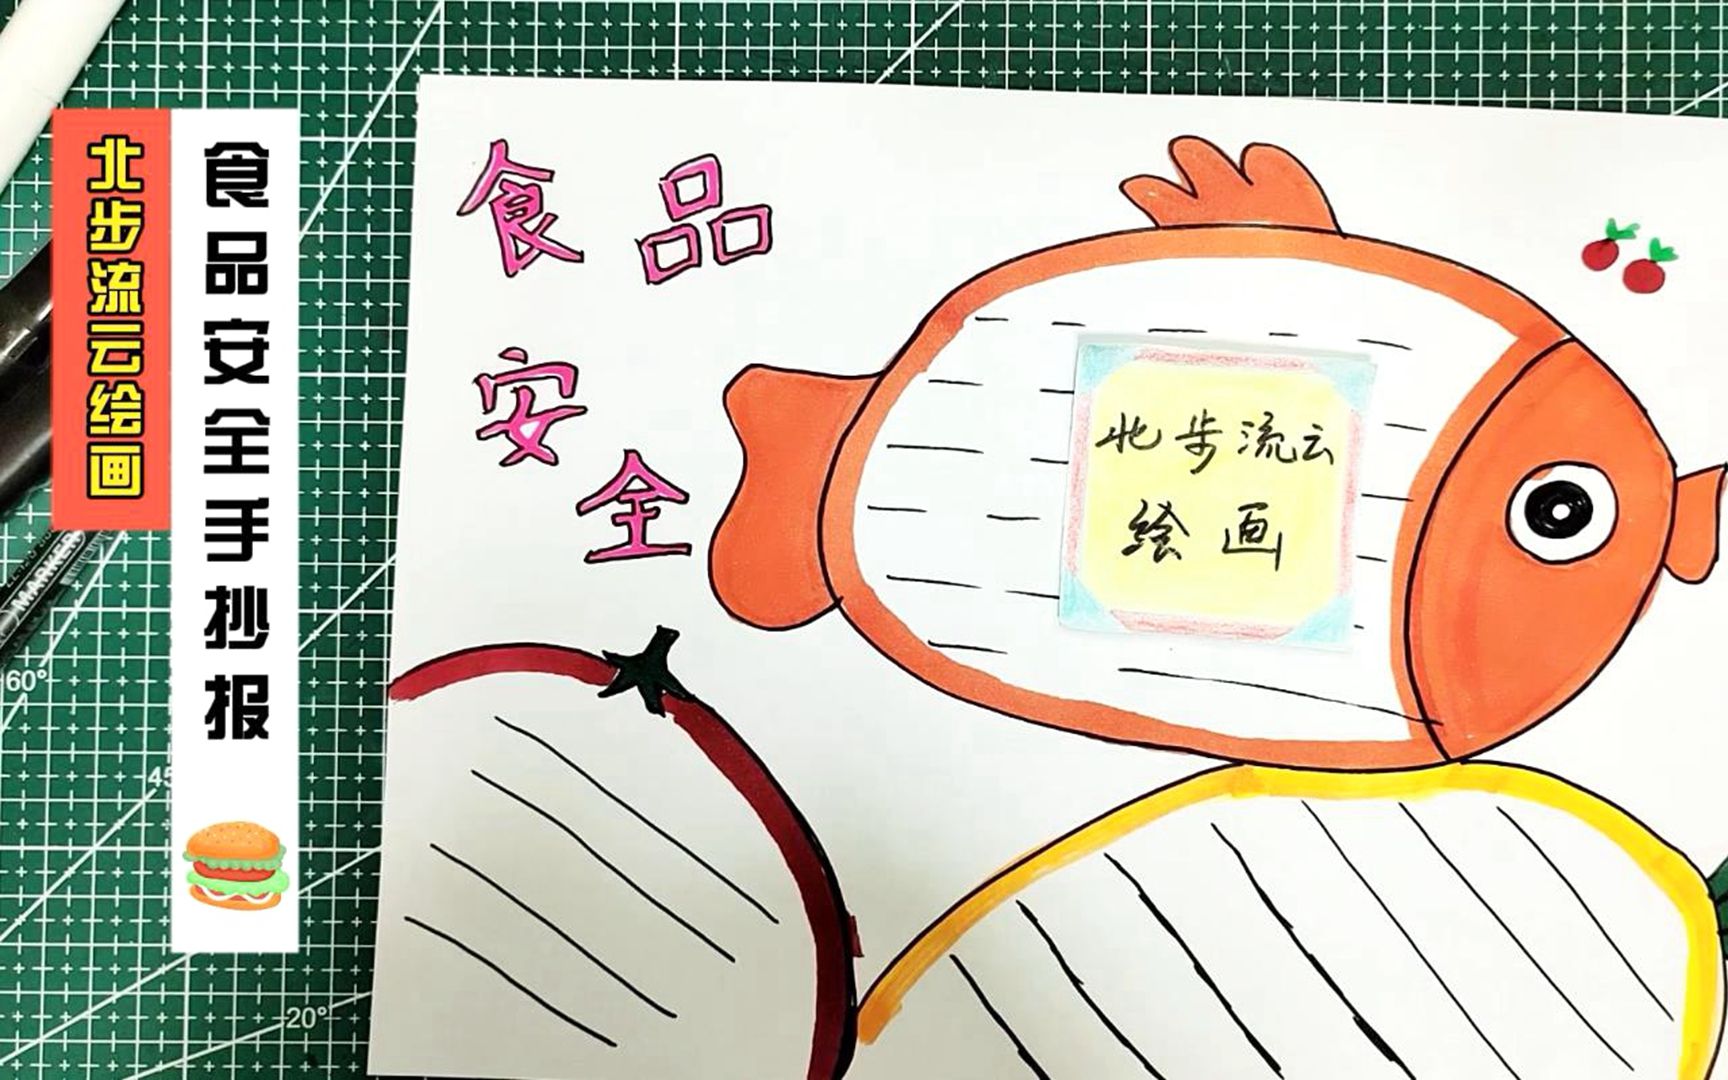 北步流云绘画
食品安全手抄报
食品
安全
北步流云
绘画
MARKER
60°
45
20°